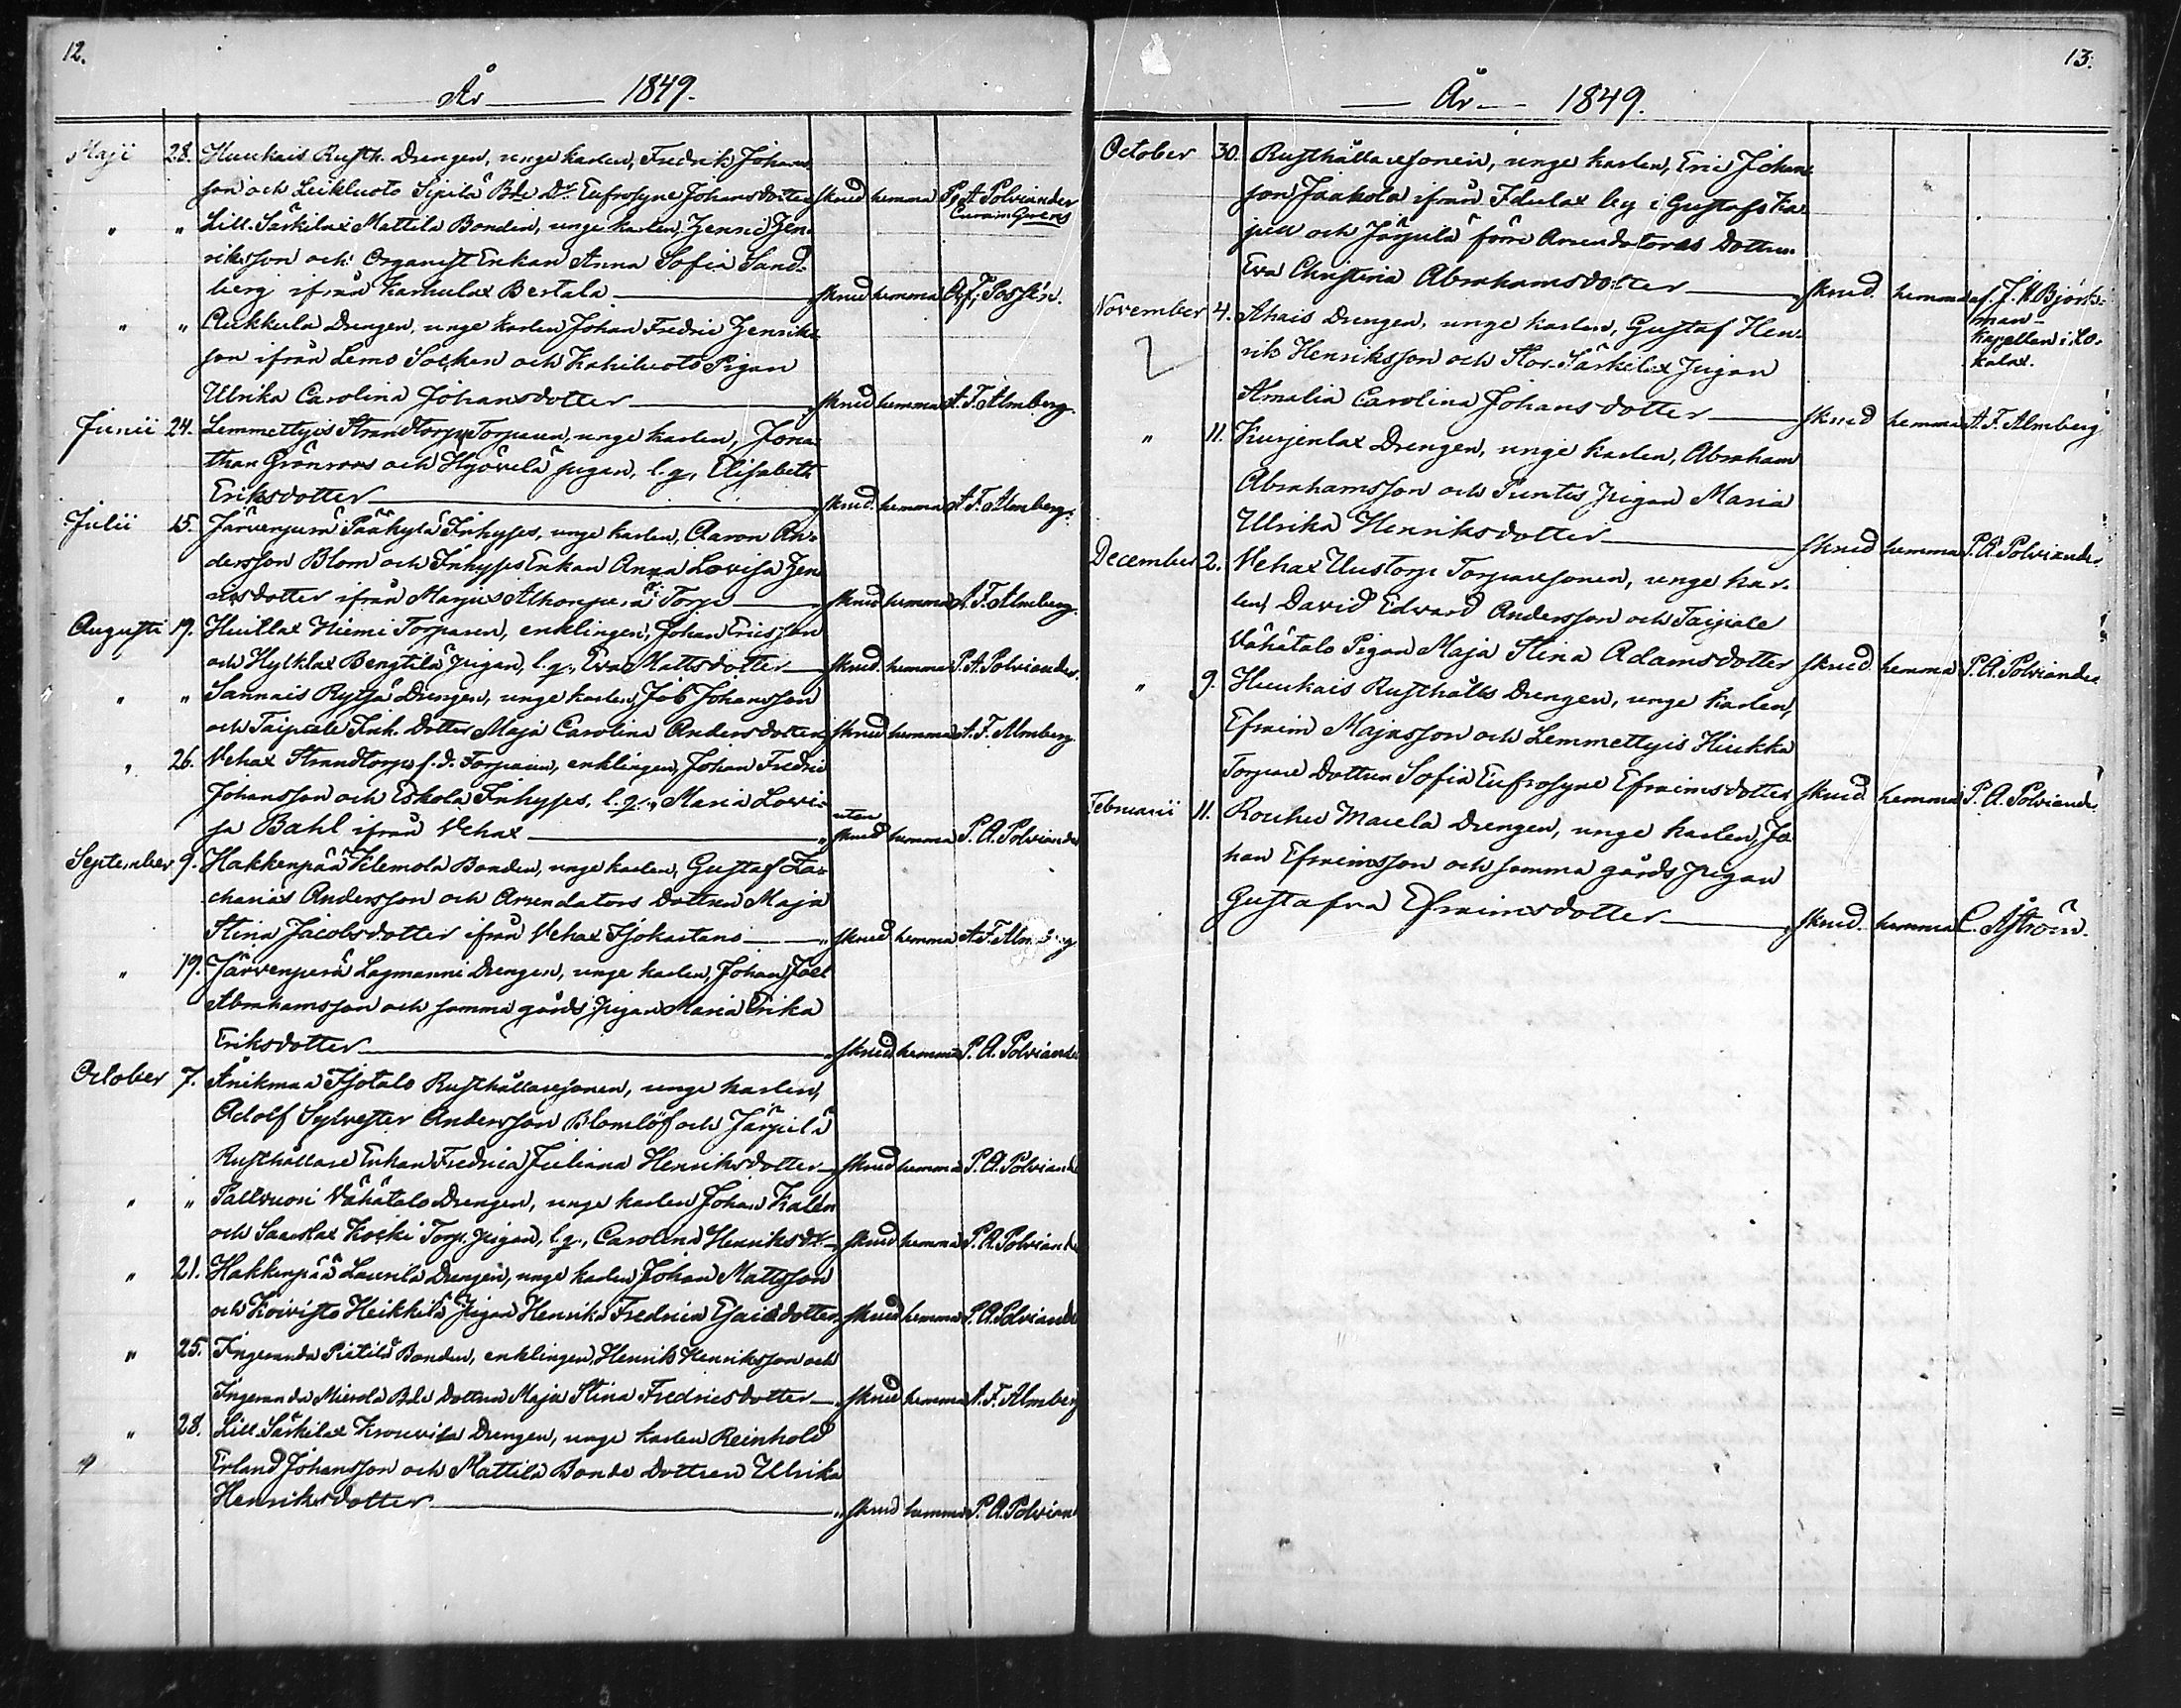 12.
År 1849.
Maji 28. Huukais Rusth. Drengen, unge karlen, Fredrik Johans
son och Leikluoto Sipilä Bde Dr Eufrosyne Johansdotter skrud hemma P. A. Polviander
" " Lill-Särkilax Mattila Bonden, unge karlen, Henric Hen-
riksson och Organist Enkan Anna Sofia Sand-
berg ifrån Karhulax Bertala skrud hemma
" " Aukkula Drengen, unge karlen Johan Fredric Henriks-
son ifrån Lemo Socken och Kahiluoto Pigan
Ulrika Carolina Johansdotter skrud hemma A. F. Almberg.
Junii 24. Lemmettyis Strandtorp Torparen, unge karlen, Jona-
than Grönroos och Hyövelä pigan, l. q., Elisabeth
Eriksdotter skrud. hemma A. F. Almberg.
Julii 15. Järvenperä Pääkylä Inhyses, unge karlen, Aaron An-
dersson Blom och Inhyses Enkan Anna Lovisa Hen
ricsdotter ifrån Marjus Alhonperä Torp skrud hemma A. F. Almberg.
Augusti 19. Huillax Niemi Torparen, enklingen, Johan Ericsson
och Hylklax Bengtilä pigan, l. q., Eva Mattsdotter skrud. hemma P. A. Polviander.
" " Sannais Rytsä Drengen, unge karlen, Job Johansson
och Taipale Inh. Dotter Maja Carolina Andersdotter skrud hemma A. F. Almberg
" 26. Vehax Strandtorp f. d. Torparen, enklingen, Johan Fredric
Johansson och Eskola Inhyses, l. q., Maria Lovi-
sa Bahl ifrån Vehax utan skrud hemma P. A. Polviander
September 9. Hakkenpää Klemola Bonden, unge karlen, Gustaf Za-
charias Andersson och Arrendators Dottren Maja
Stina Jacobsdotter ifrån Vehax Isjokartano skrud hemma A. F. Almberg
" 19. Järvenperä Lagmanni Drengen, unge karlen, Johan Joel
Abrahamsson och samma gårds pigan Maria Erika
Eriksdotter skrud hemma P. A. Polviander
October 7. Änikmaa Isotalo Rusthållaresonen, unge karlen,
Adolf Sylvester Andersson Blomlöf och Järpilä
Rusthållare Enkan Fredrica Juliana Henriksdotter skrud hemma P. A. Polviande
" " Palcvuori Vähätalo Drengen, unge karlen Johan Kalén
och Saaslax Koski Torp. pigan, l. q., Carolina Henriksdr skrud hemma P. A. Polviande
" 21. Hakkenpää Laurila Drengen, unge karlen Johan Mattsson
och Koivisto Heikkilä Pigan Henrika Fredrica Esaiedotter skrud hemma P. A. Polviande
" 25. Ingeranda Pietilä Bonden, enklingen, Henrik Henriksson och
Ingeranda Mierola Bde Dottren Maja Stina Fredricsdotter skrud hemma A. F. Almberg
" 28. Lill-Särkilax Krouvila Drengen, unge karlen Reinhold
Erland Johansson och Mattila Bonde Dottren Ulrika
Henriksdotter skrud hemma P. A. Polvian
13.
År 1849.
October 30. Rusthållaresonen, unge karlen, Eric Johans
son Jaakola ifrån Idulax by i Gustafs Ka-
pell och Järpilä förre Arrendatoras Dottren
Eva Christina Abrahamsdotter skrud. hemma af J. H. Björk-
man
Kapellan i Lo-
kalax.
November 4. Ahais Drengen, unge karlen, Gustaf Hen-
rik Henriksson och Stor-Särkilax Pigan
Amalia Carolina Johansdotter skrud hemma A. F. Almberg
" 11. Kurjenlax Drengen, unge karlen, Abraham
Abrahamsson och Puntis Pigan Maria
Ulrika Henriksdotter skrud hemma P. A. Polviander
December 2. Vehax Uustorp Torparesonen, unge kar-
len, David Edvard Andersson och Taipale
Vähätalo Pigan Maja Stina Adamsdotter skrud hemma P. A. Polviander
" 9. Huukais Rusthålls Drengen, unge karlen,
Efraim Majasson och Lemmettyis Hiukka
Torpare Dottren Sofia Eufrosyne Efraimsdotter skrud hemma P. A. Polviande
Februarii 11. Rouhu Marcla Drengen, unge karlen, Jo
han Efraimsson och samma gårds pigan
Gustafva Efraimsdotter skrud. hemma C. Aström.